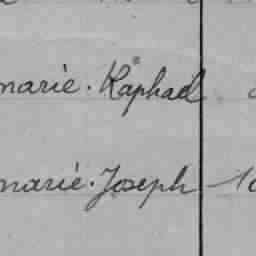 marie. Raphael
marie. Joseph 10